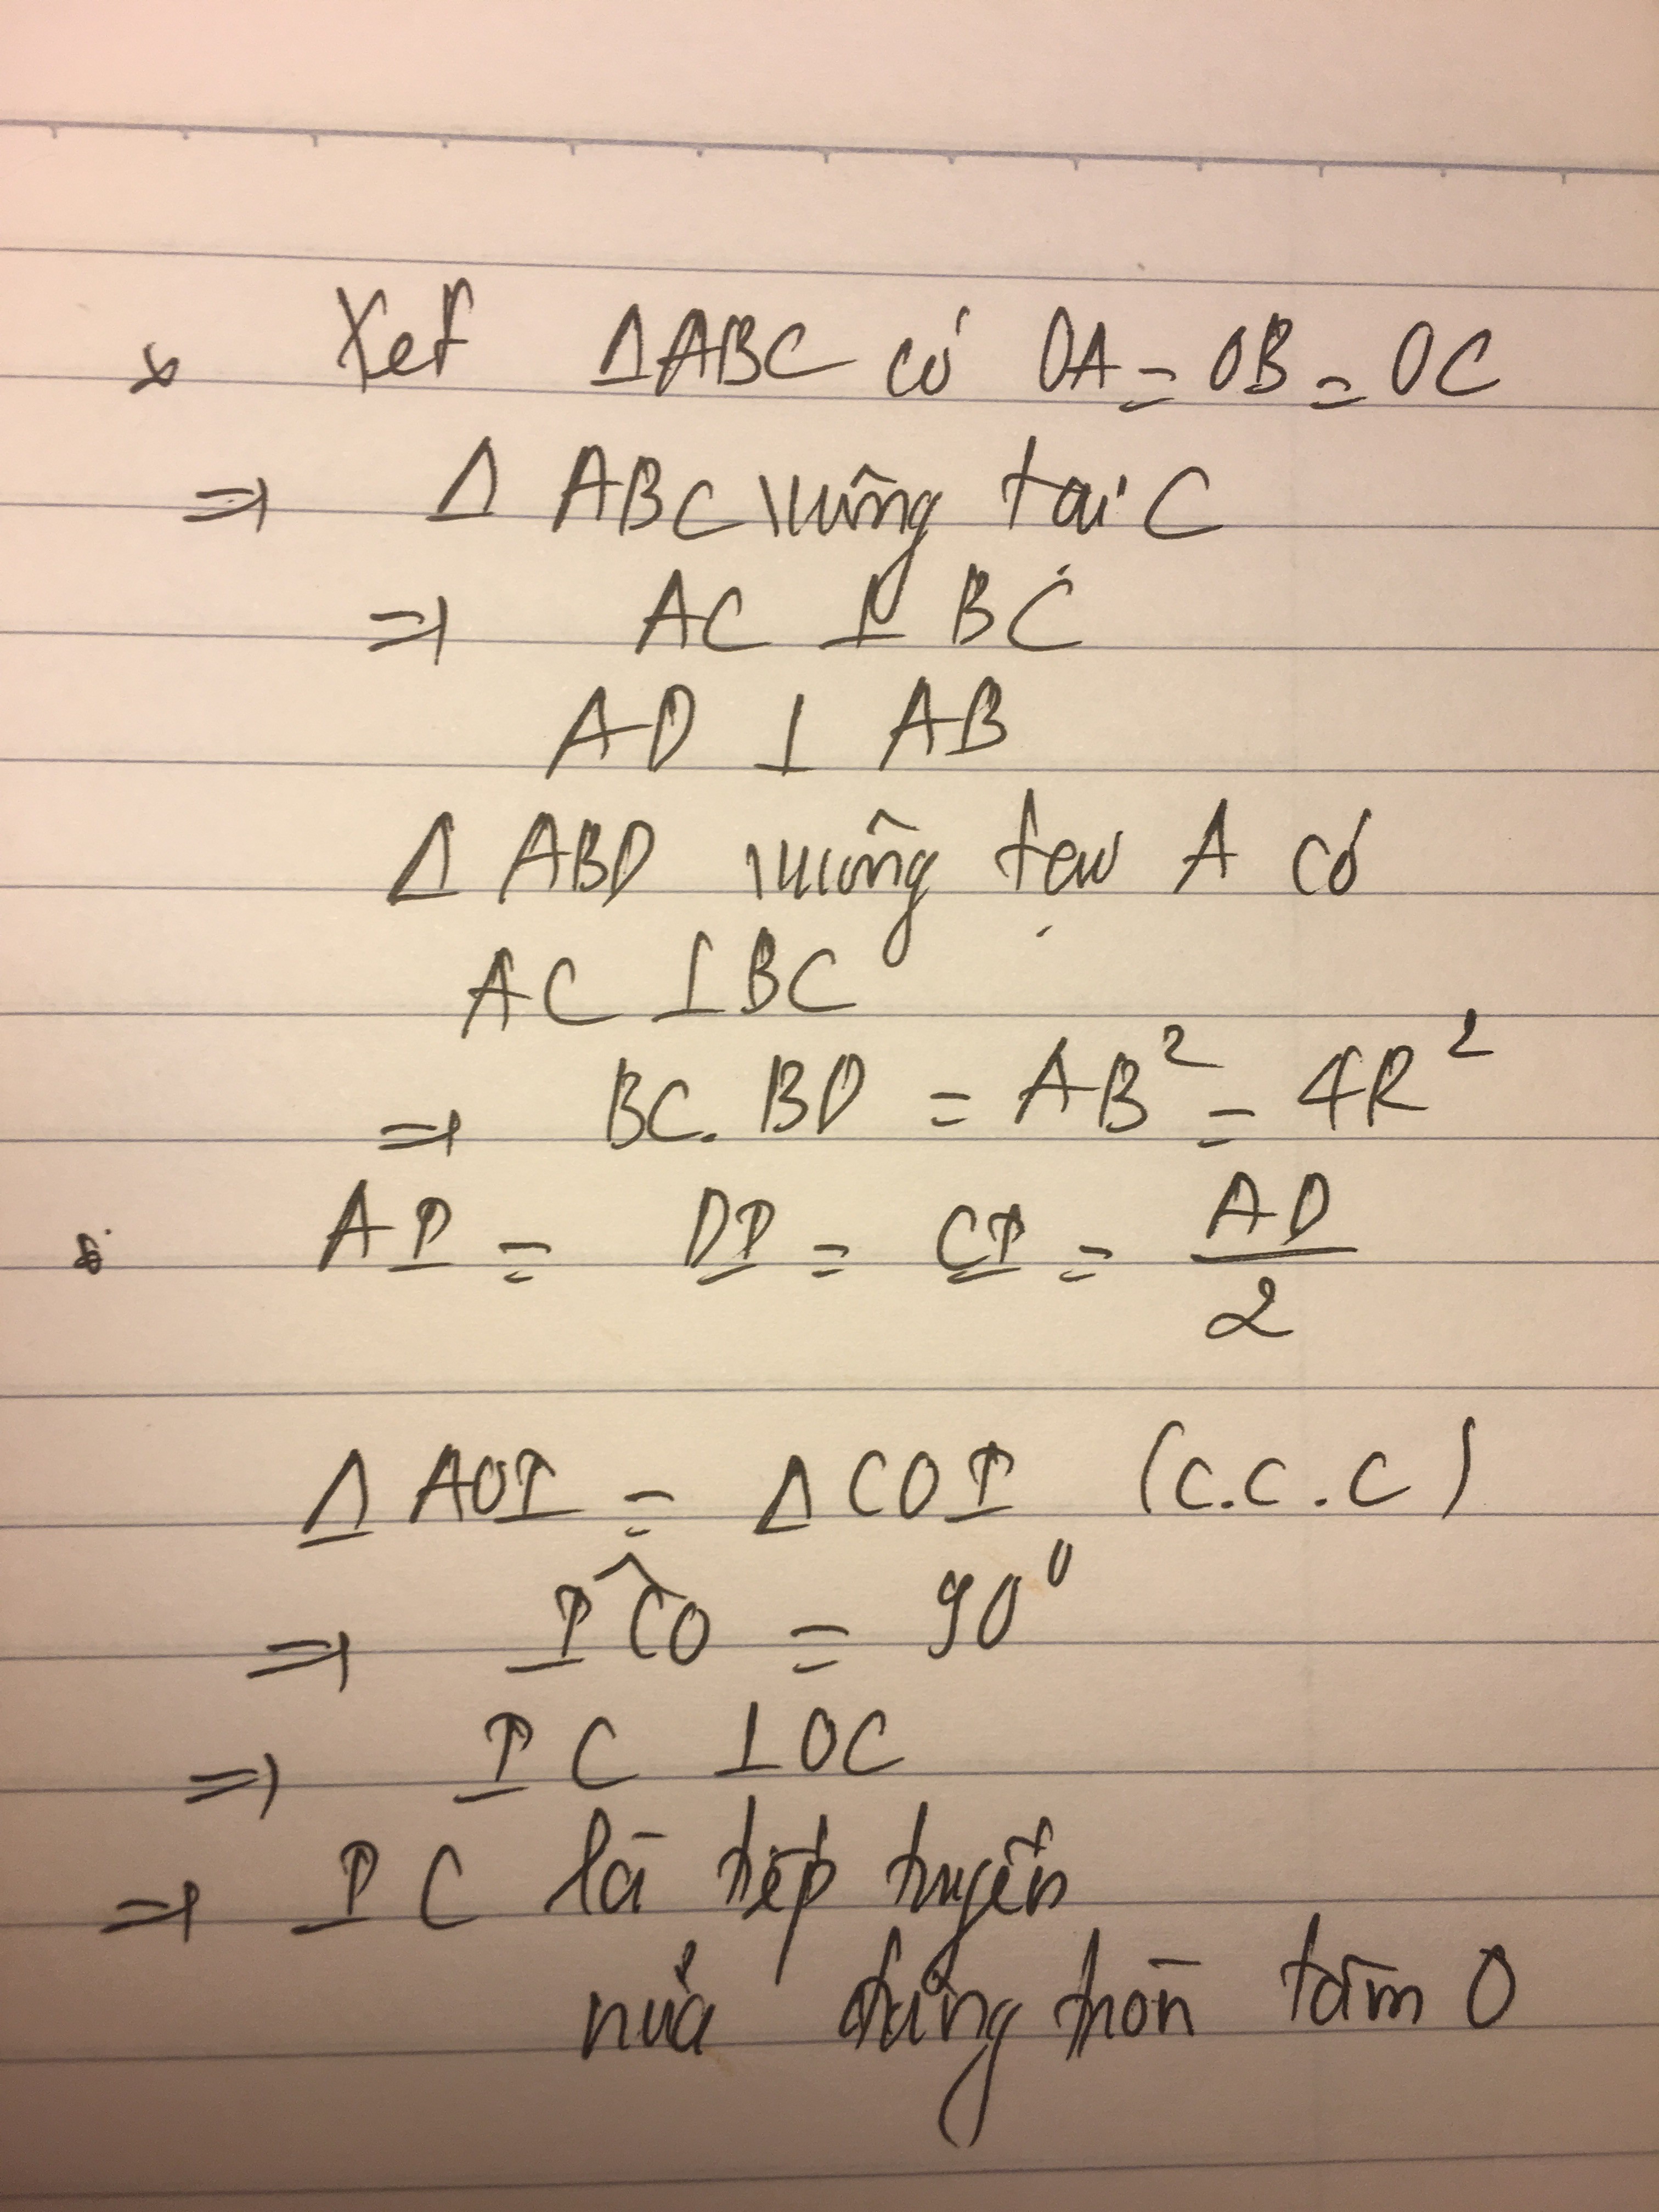 * Xét ΔABC có OA = OB = OC
=> Δ ABC vuông tại C
=> AC ⊥ BC
AD ⊥ AB
Δ ABD vuông tại A có
AC ⊥ BC
=> BC. BD = AB² = 4R²
* AI = DI = CI = AD/2
Δ AOI = Δ COI (c.c.c)
=> ICO = 90⁰
=> IC ⊥ OC
=> IC là tiếp tuyến
nửa đường tròn tâm O